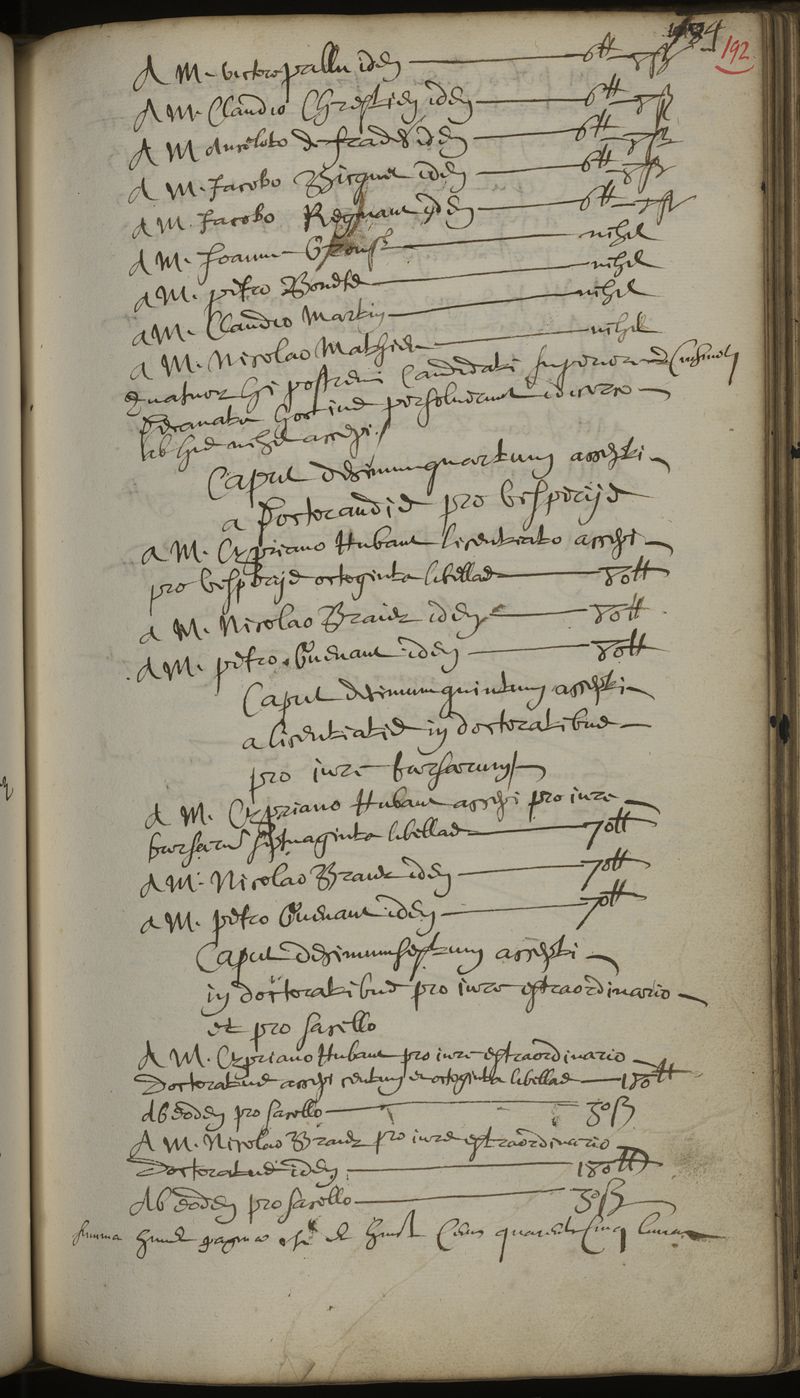 184
192
A M. victore pallu idem 6 ₶ 8 ß
A M. Claudio Chrestien idem 6 ₶ 8 ß
A M anceloto de frades idem 6 ₶ 8 ß
A M. Jacobo Bicquet idem 6 ₶ 8 ß
A M. Jacobo Regnault idem 6 ₶ 8 ß
A M. Joanne nihil
A M. petro nihil
A M. Claudio Martin nihil
A M. Nicolao Mathieu nihil
Quatuor hi postremi Candidati superiori
Decanatu hoc persoluerunt idcirco
ab his nihil accepi.
Caput decimumquartum accepti
a Doctorandis pro vesperijs
A M. Cypriano Hubaut licentiato accepi
pro vesperijs octoginta libellas 80 ₶
A M. Nicolao Braier idem 80 ₶
A M. petro Guenaut idem 80 ₶
Caput decimumquintum accepti
a licentiatis in doctoratibus
pro iure bursarum
A M. Cypriano Hubaut accepi pro iure
bursarum septuaginta libellas 70 ₶
A M. Nicolao Braier idem 70 ₶
A M. petro Guenaut idem 70 ₶
Caput decimumsextum accepti
in doctoratibus pro iure extraordinario
et pro sacello
A M. Cypriano Hubaut pro iure extraordinario
Doctoratus accepi centum et octoginta libellas 180 ₶
Ab eodem pro sacello 30 ß
A M. Nicolao Braier pro iure extraordinario
Doctoratus idem 180 ₶
Ab eodem pro sacello 30 ß
summa huius paginae est de huict Cens quarente Cinq liures